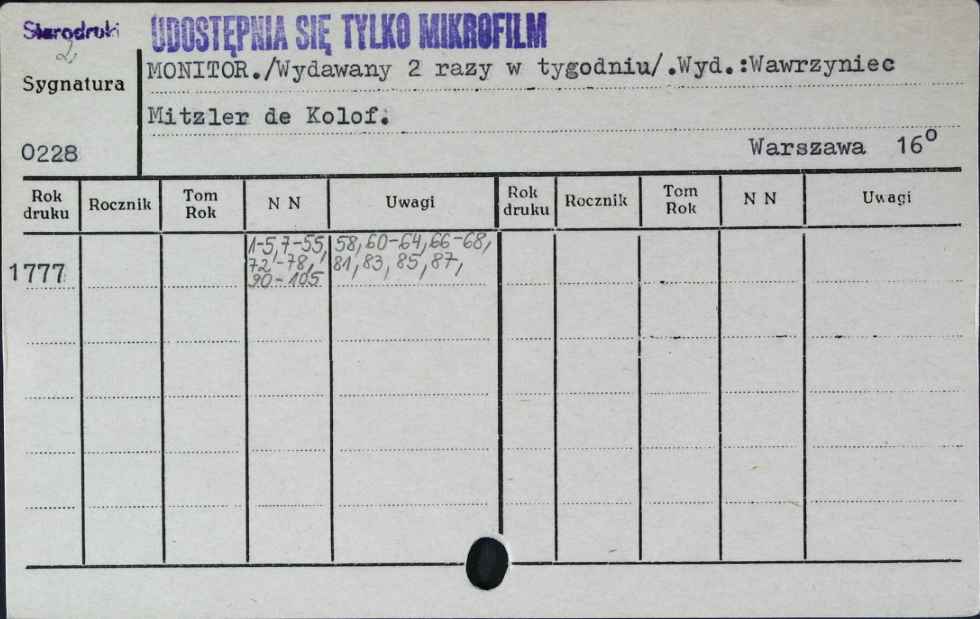 Starodruki
UDOSTĘPNIA SIĘ TYLKO MIKROFILM
2,
Sygnatura
MONITOR./Wydawany 2 razy w tygodniu/.Wyd.:Wawrzyniec
Mitzler de Kolof.
0228
Warszawa 16°
Rok druku Rocznik Tom Rok N N Uwagi Rok druku Rocznik Tom Rok N N Uwagi
1777 1-5,7-55, 58,60-64,66-68,
72-78, 81,83,85,87,
90-105